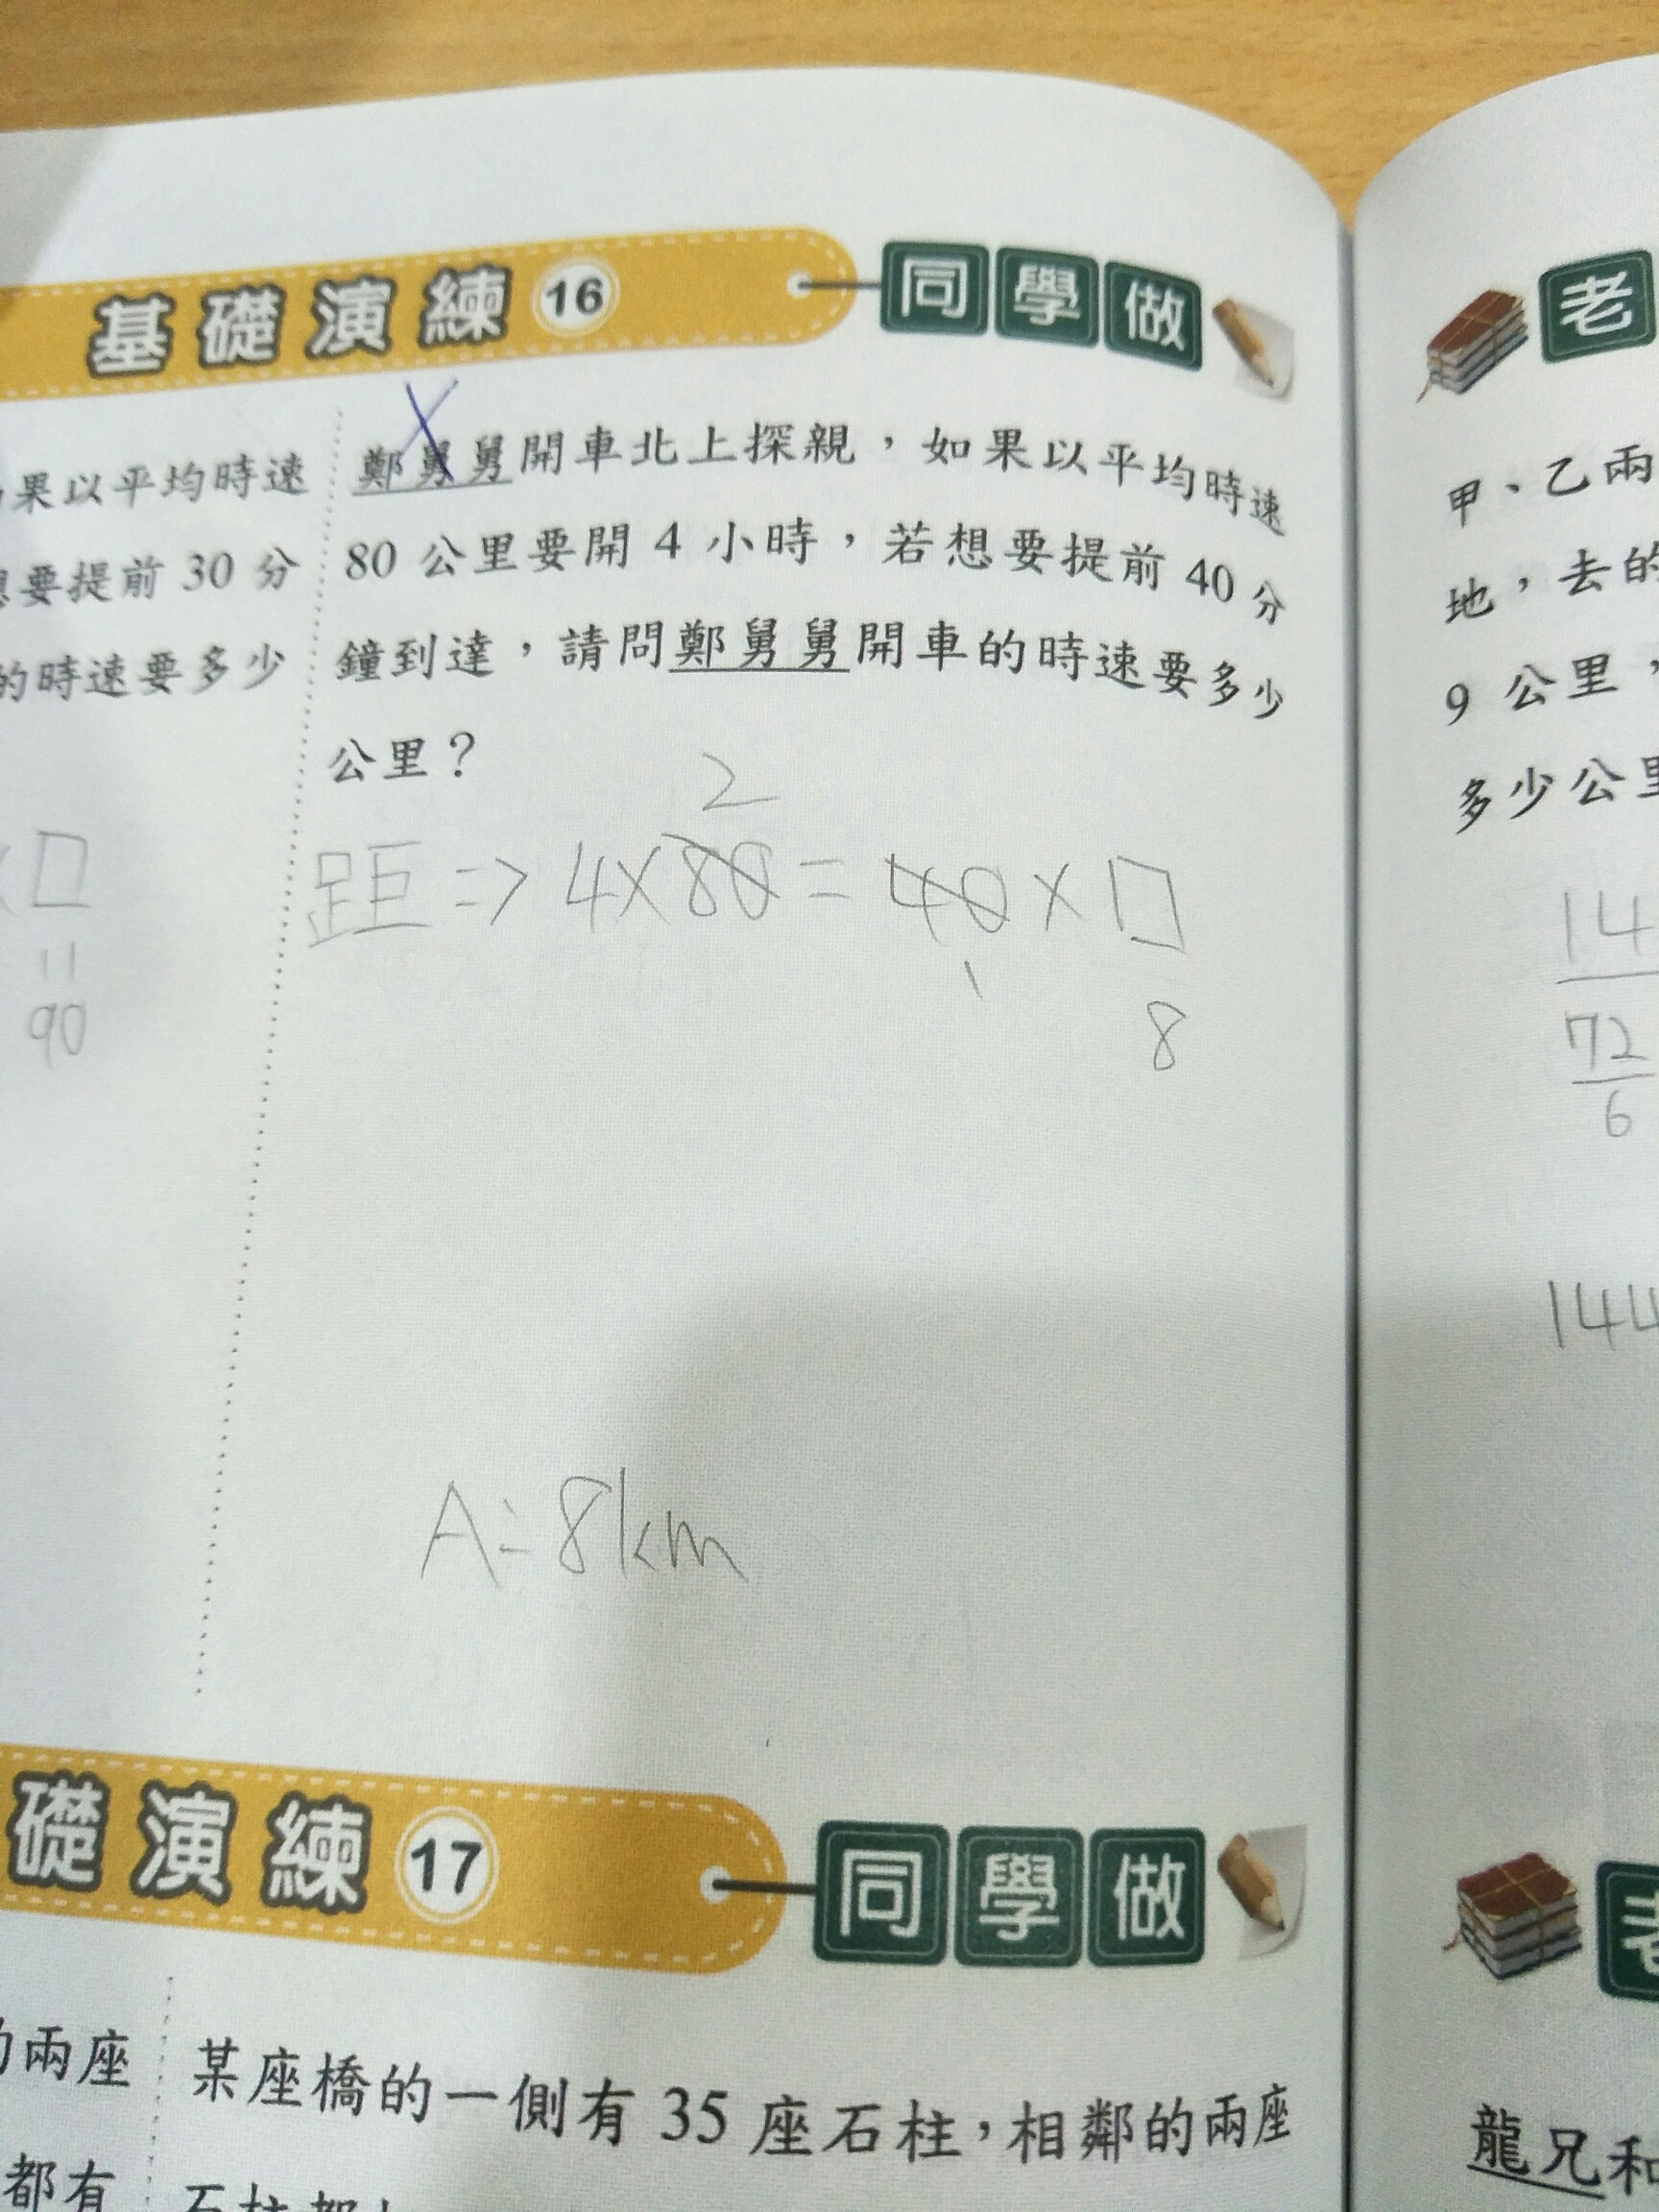 基礎演練 16 同學做
果以平均時速
要提前 30 分
的時速要多少
□
11
90
鄭舅舅開車北上探親，如果以平均時速
80 公里要開 4 小時，若想要提前 40 分
鐘到達，請問鄭舅舅開車的時速要多少
公里？
2
距 => 4×80 = 40 × □
1
8
A: 8km
礎演練 17 同學做
兩座
都有
某座橋的一側有 35 座石柱，相鄰的兩座
老
甲、乙兩
地，去的
9 公里，
多少公里
14
72
6
144
龍兄和